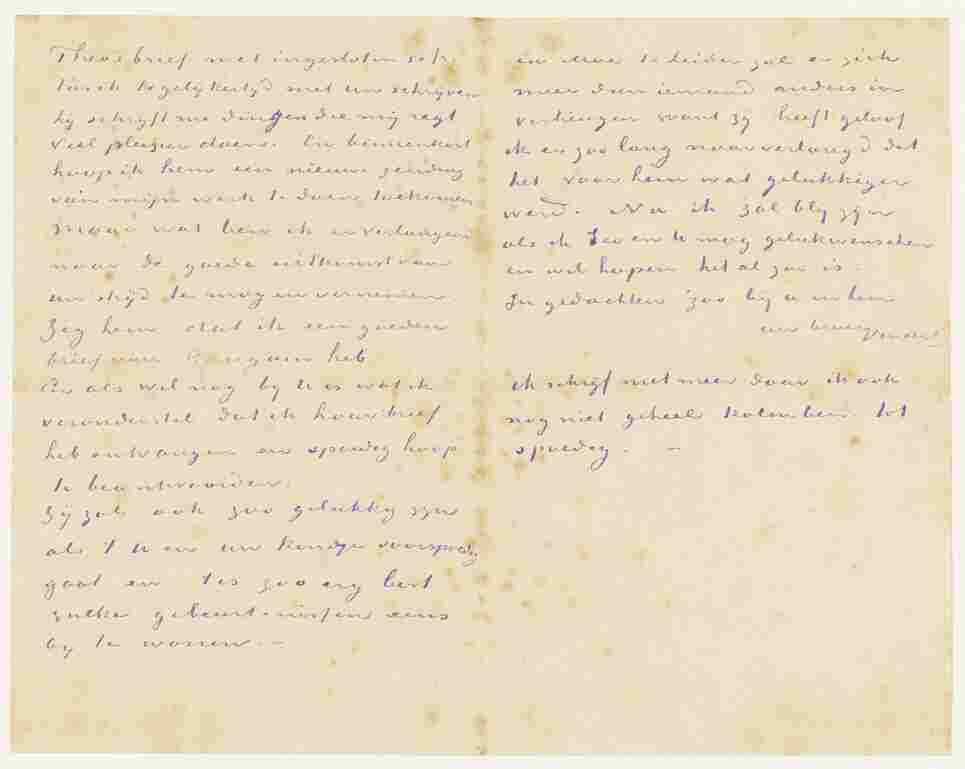 Theos brief met ingesloten
las ik tegelijkertyd met uw schrijven
hij schrijft me dingen die mij regt
veel pleizier doen. En binnenkort
hoop ik hem een nieuwe zending
van mijn werk te doen toekomen
Maar wat ben ik er verlangend
naar de goede uitkomst van
uw stryd te mogen vernemen
Zeg hem dat ik een goeden
brief van Gauguin heb
En als Wil nog by U is wat ik
veronderstel dat ik haar brief
heb ontvangen en spoedig hoop
te beantwoorden.
Zij zal ook zoo gelukkig zyn
als 't U en uw kindje voorspoedig
gaat en tis zoo erg best
zulke gebeurtenissen eens
by te wonen. —
en Moe te Leiden zal er zich
meer dan iemand anders in
verheugen want zy heeft geloof
ik er zoo lang naar verlangd dat
het voor hem wat gelukkiger
werd. Nu ik zal bly zyn
als ik Theo en U mag gelukwenschen
en wil hopen het al zoo is.
In gedachten zoo by U en hem
uw broer Vincent
ik schryf niet meer daar ik ook
nog niet geheel kalm ben tot
spoedig. —